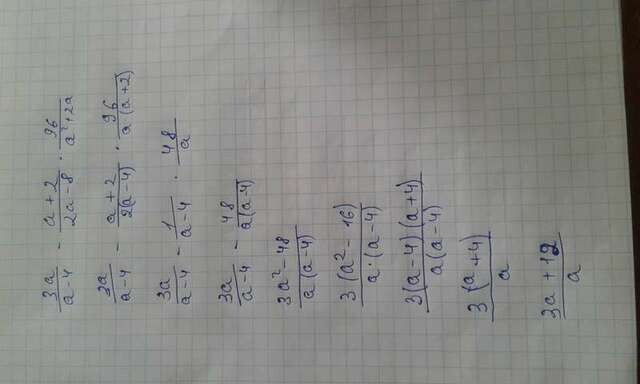 3a/(a-4) - (a+2)/(2a-8) · 96/(a²+2a)
3a/(a-4) - (a+2)/(2(a-4)) · 96/(a·(a+2))
3a/(a-4) - 1/(a-4) · 48/a
3a/(a-4) - 48/(a(a-4))
(3a²-48)/(a(a-4))
3(a²-16)/(a·(a-4))
3(a-4)(a+4)/(a(a-4))
3(a+4)/a
(3a+12)/a